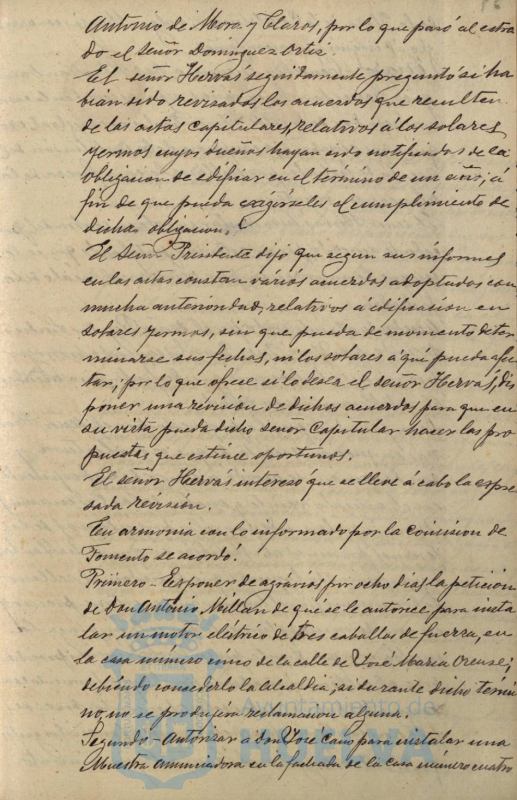 86
Antonio de Mora y Claros, por lo que pasó al estra
do el señor Dominguez Ortiz
El señor Hervás seguidamente preguntó si ha
bian sido revisados los acuerdos que resulten
de las actas capitulares, relativos á los solares
yermos cuyos dueños hayan sido notificados de la
obligacion de edificar en el termino de un año, á
fin de que pueda exigírseles el cumplimiento de
dicha obligacion.
El Señor Presidente dijo que segun sus informes
en las actas constan varios acuerdos adoptados con
mucha anterioridad, relativos á edificacion en
solares yermos, sin que pueda de momento deter
minarse sus fechas, ni los solares a que pueda afec
tar; por lo que ofrece si lo desea el señor Hervás, dis
poner una revision de dichos acuerdos para que en
su virtud pueda dicho señor Capitular hacer las pro
puestas que estime oportunas.
El señor Hervás interesó que se lleve á cabo la expre
sada revisión.
En armonia con lo informado por la Comision de
Fomento se acordó:
Primero - Exponer de agravios por ocho dias la petición
de Don Antonio Millan de que se le autorice para insta
lar un motor eléctrico de tres caballos de fuerza, en
la casa número cinco de la calle de José Maria Orense;
debiendo concederlo la Alcaldia, si durante dicho térmi
no, no se produjera reclamacion alguna.
Segundo - Autorizar a don José Cano para instalar una
Muestra Anunciadora en la fachada de la casa número cuatro
Ayuntamiento de
HUELVA